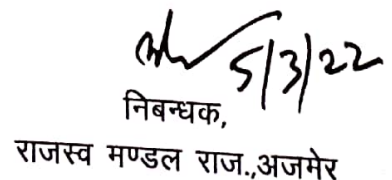 5/3/22
निबन्धक,
राजस्व मण्डल राज.,अजमेर